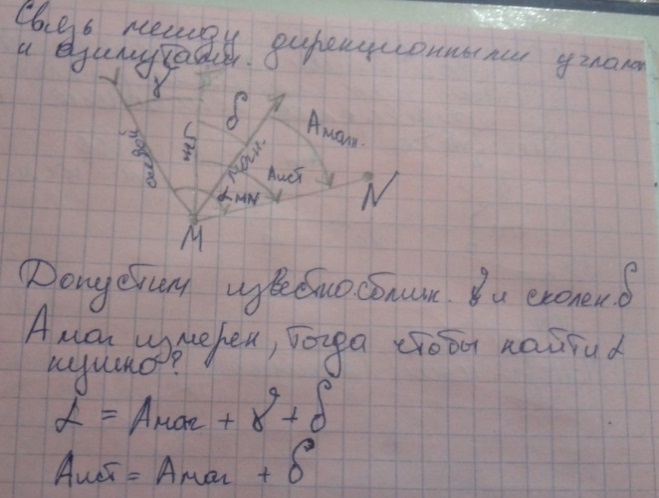 Связь между дирекционными углами
и азимутами.
γ
δ
Aмагн.
осевой
ист
магн.
Aист
α MN
N
M
Допустим известно сближ. γ и склон. δ
A маг измерен, тогда чтобы найти α
нужно?
α = Aмаг + γ + δ
Aист = Aмаг + δ